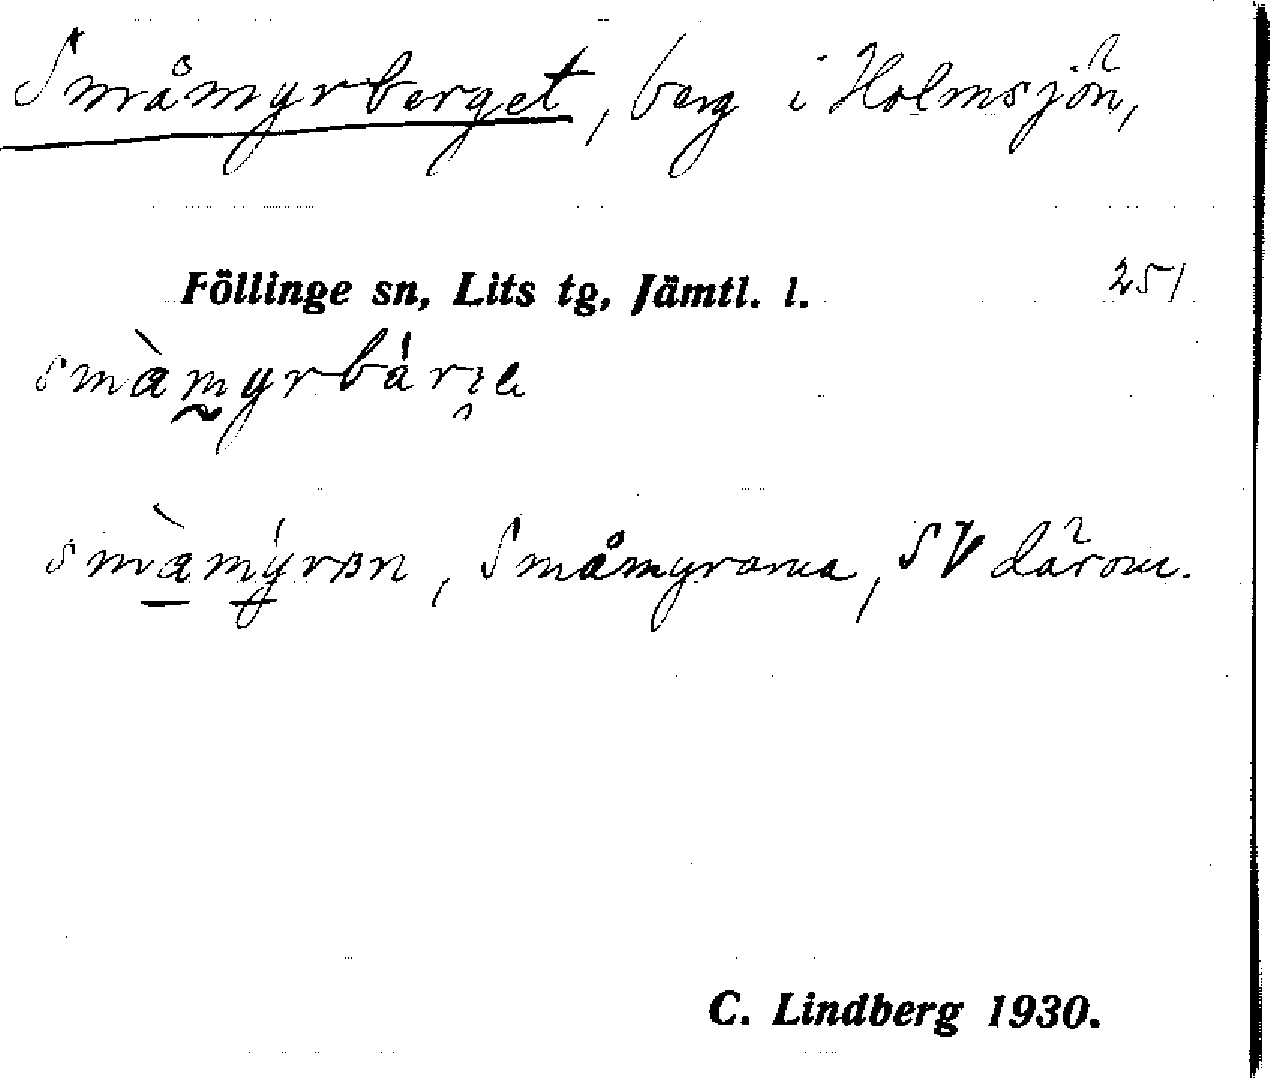 Småmyrberget, berg i Holmsjön,
Föllinge sn, Lits tg, Jämtl. l. 251
smàmyrbár
smàmýrɒn, Småmyrarna, SV därom.
C. Lindberg 1930.